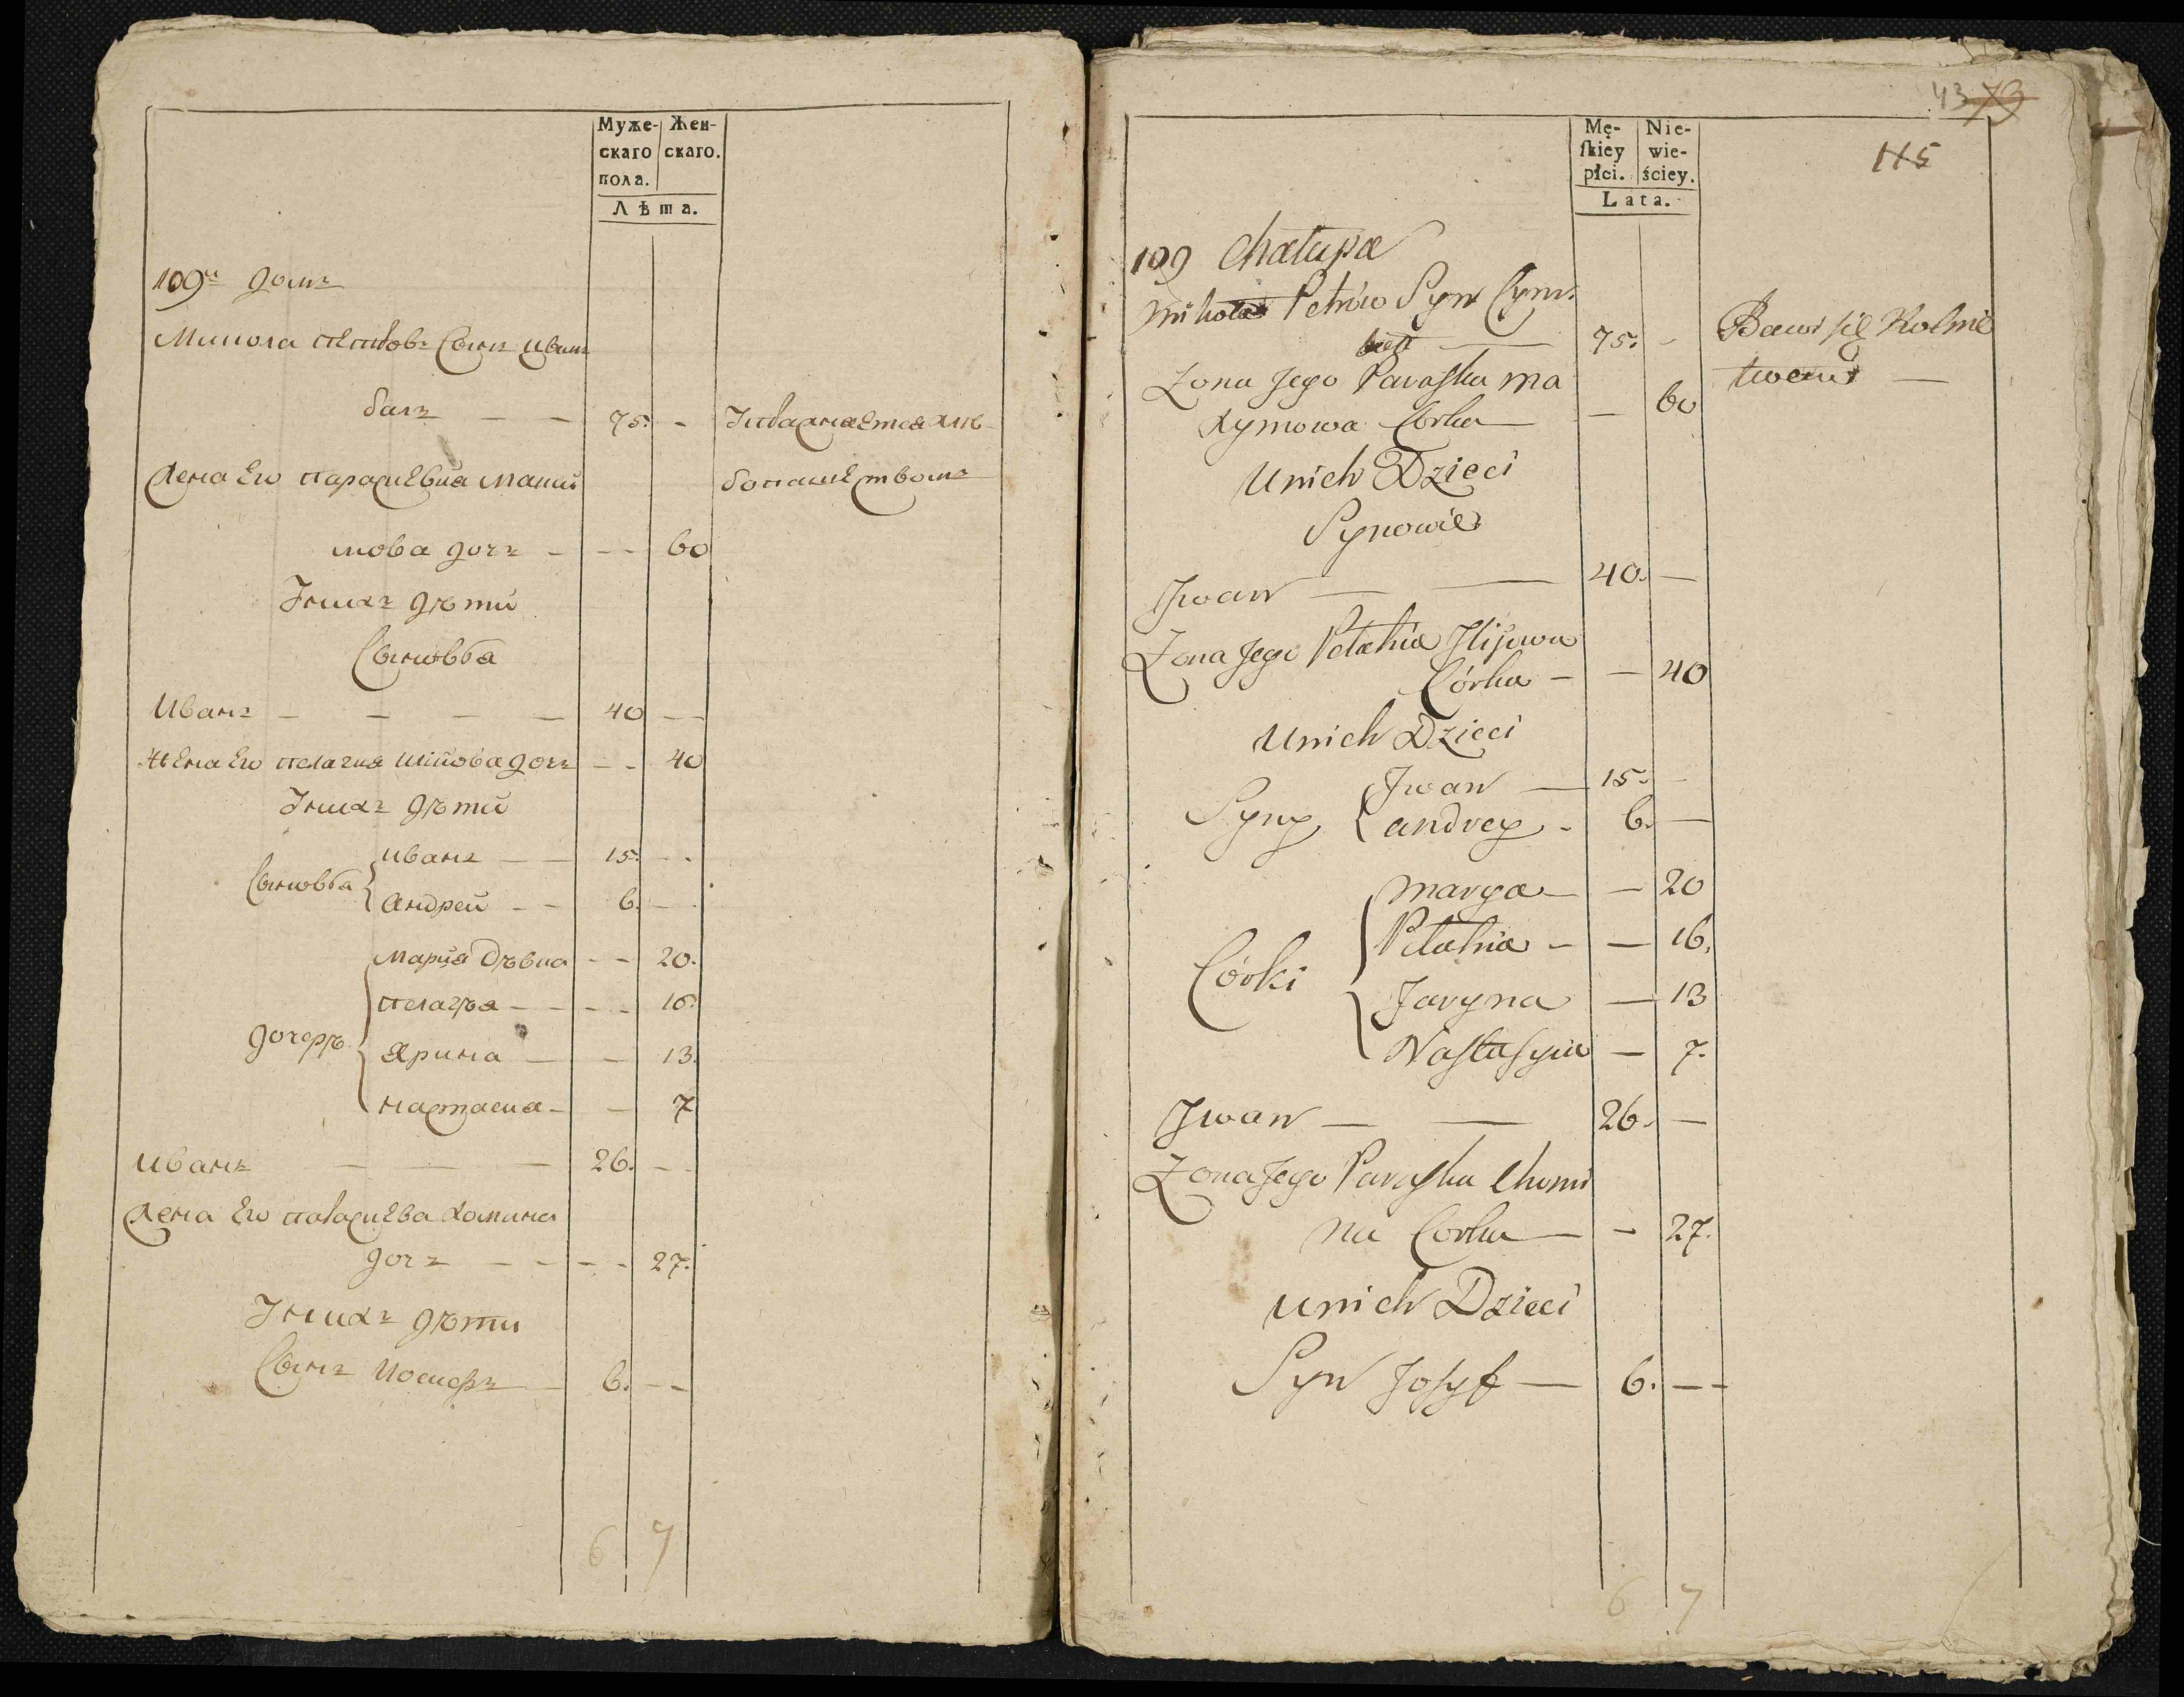 Муже- Жен-
скаго скаго.
пола.
Лѣта.
109й домъ
Микола Петровъ Сынъ Цым
балъ — — 75. -
Жена Его Параскевия Макси
мова дочъ - - - 60
У нихъ дѣти
Сыновья
Иванъ - - - - 40 - -
Жена Его Пелагия дочъ - - 40
У нихъ дѣти
Сыновья
Иванъ — — 15. - -
Андрей - - 6. - -
дочерѣ
Мария Дѣвка - - 20.
Пелагѣя - - - - 16.
Ярина — - 13.
Настасия - - 7
Иванъ — — — 26. - -
Жена Его Параскева Хомина
дочъ - - - - 27.
У нихъ дѣти
Сынъ Иосифъ — 6. - -
6 7
43 73
115
Mę- Nie-
ſkiey wie-
płci. ściey.
Lata.
109 Chałupa
Mikołai Petrów Syn Cym
bał — 75. - Bawi się Rolnic
Zona Jego Paraska Ma twem —
xymowa Corka — 60
U nich Dzieci
Synowie
Jwan — — 40. —
Zona Jego Pelahia Jlijowa
Córka - - 40
U nich Dzieci
Syny
Jwan — 15. -
Andrey - 6. —
Córki
Marya — — 20
Pelahia - — 16.
Jaryna — 13
Nastasyia — 7.
Jwan — — 26. —
Zona Jego Paraska Chomi
na Corka — - 27.
U nich Dzieci
Syn Josyf — 6. — -
6 7